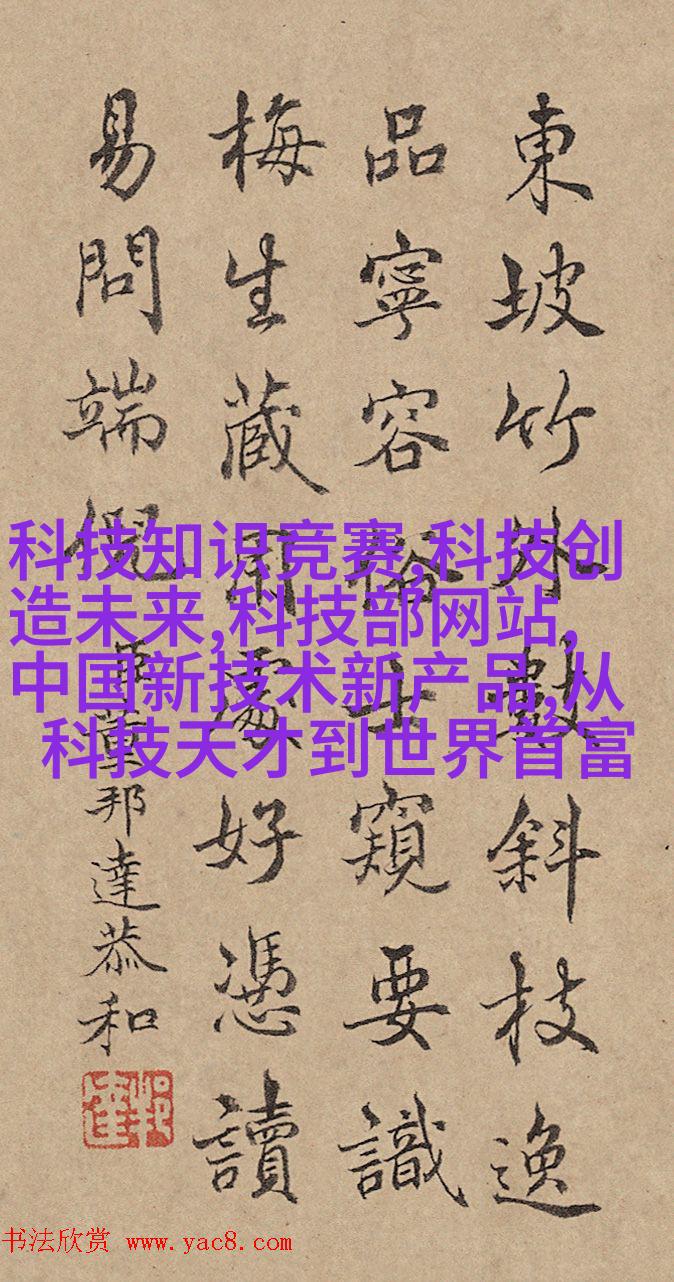 東坡竹外數斜枝逸
品寧容俗士窺要識
梅生藏用處好憑讀
易問端倪 臣董邦達恭和
科技知识竞赛,科技创
造未来,科技部网站,
中国新技术新产品,从
科技天才到世界首富
书法欣赏 www.yac8.com